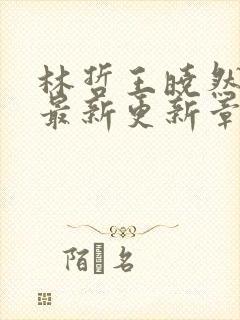 林哲王晓然
最新更新章
陌 名